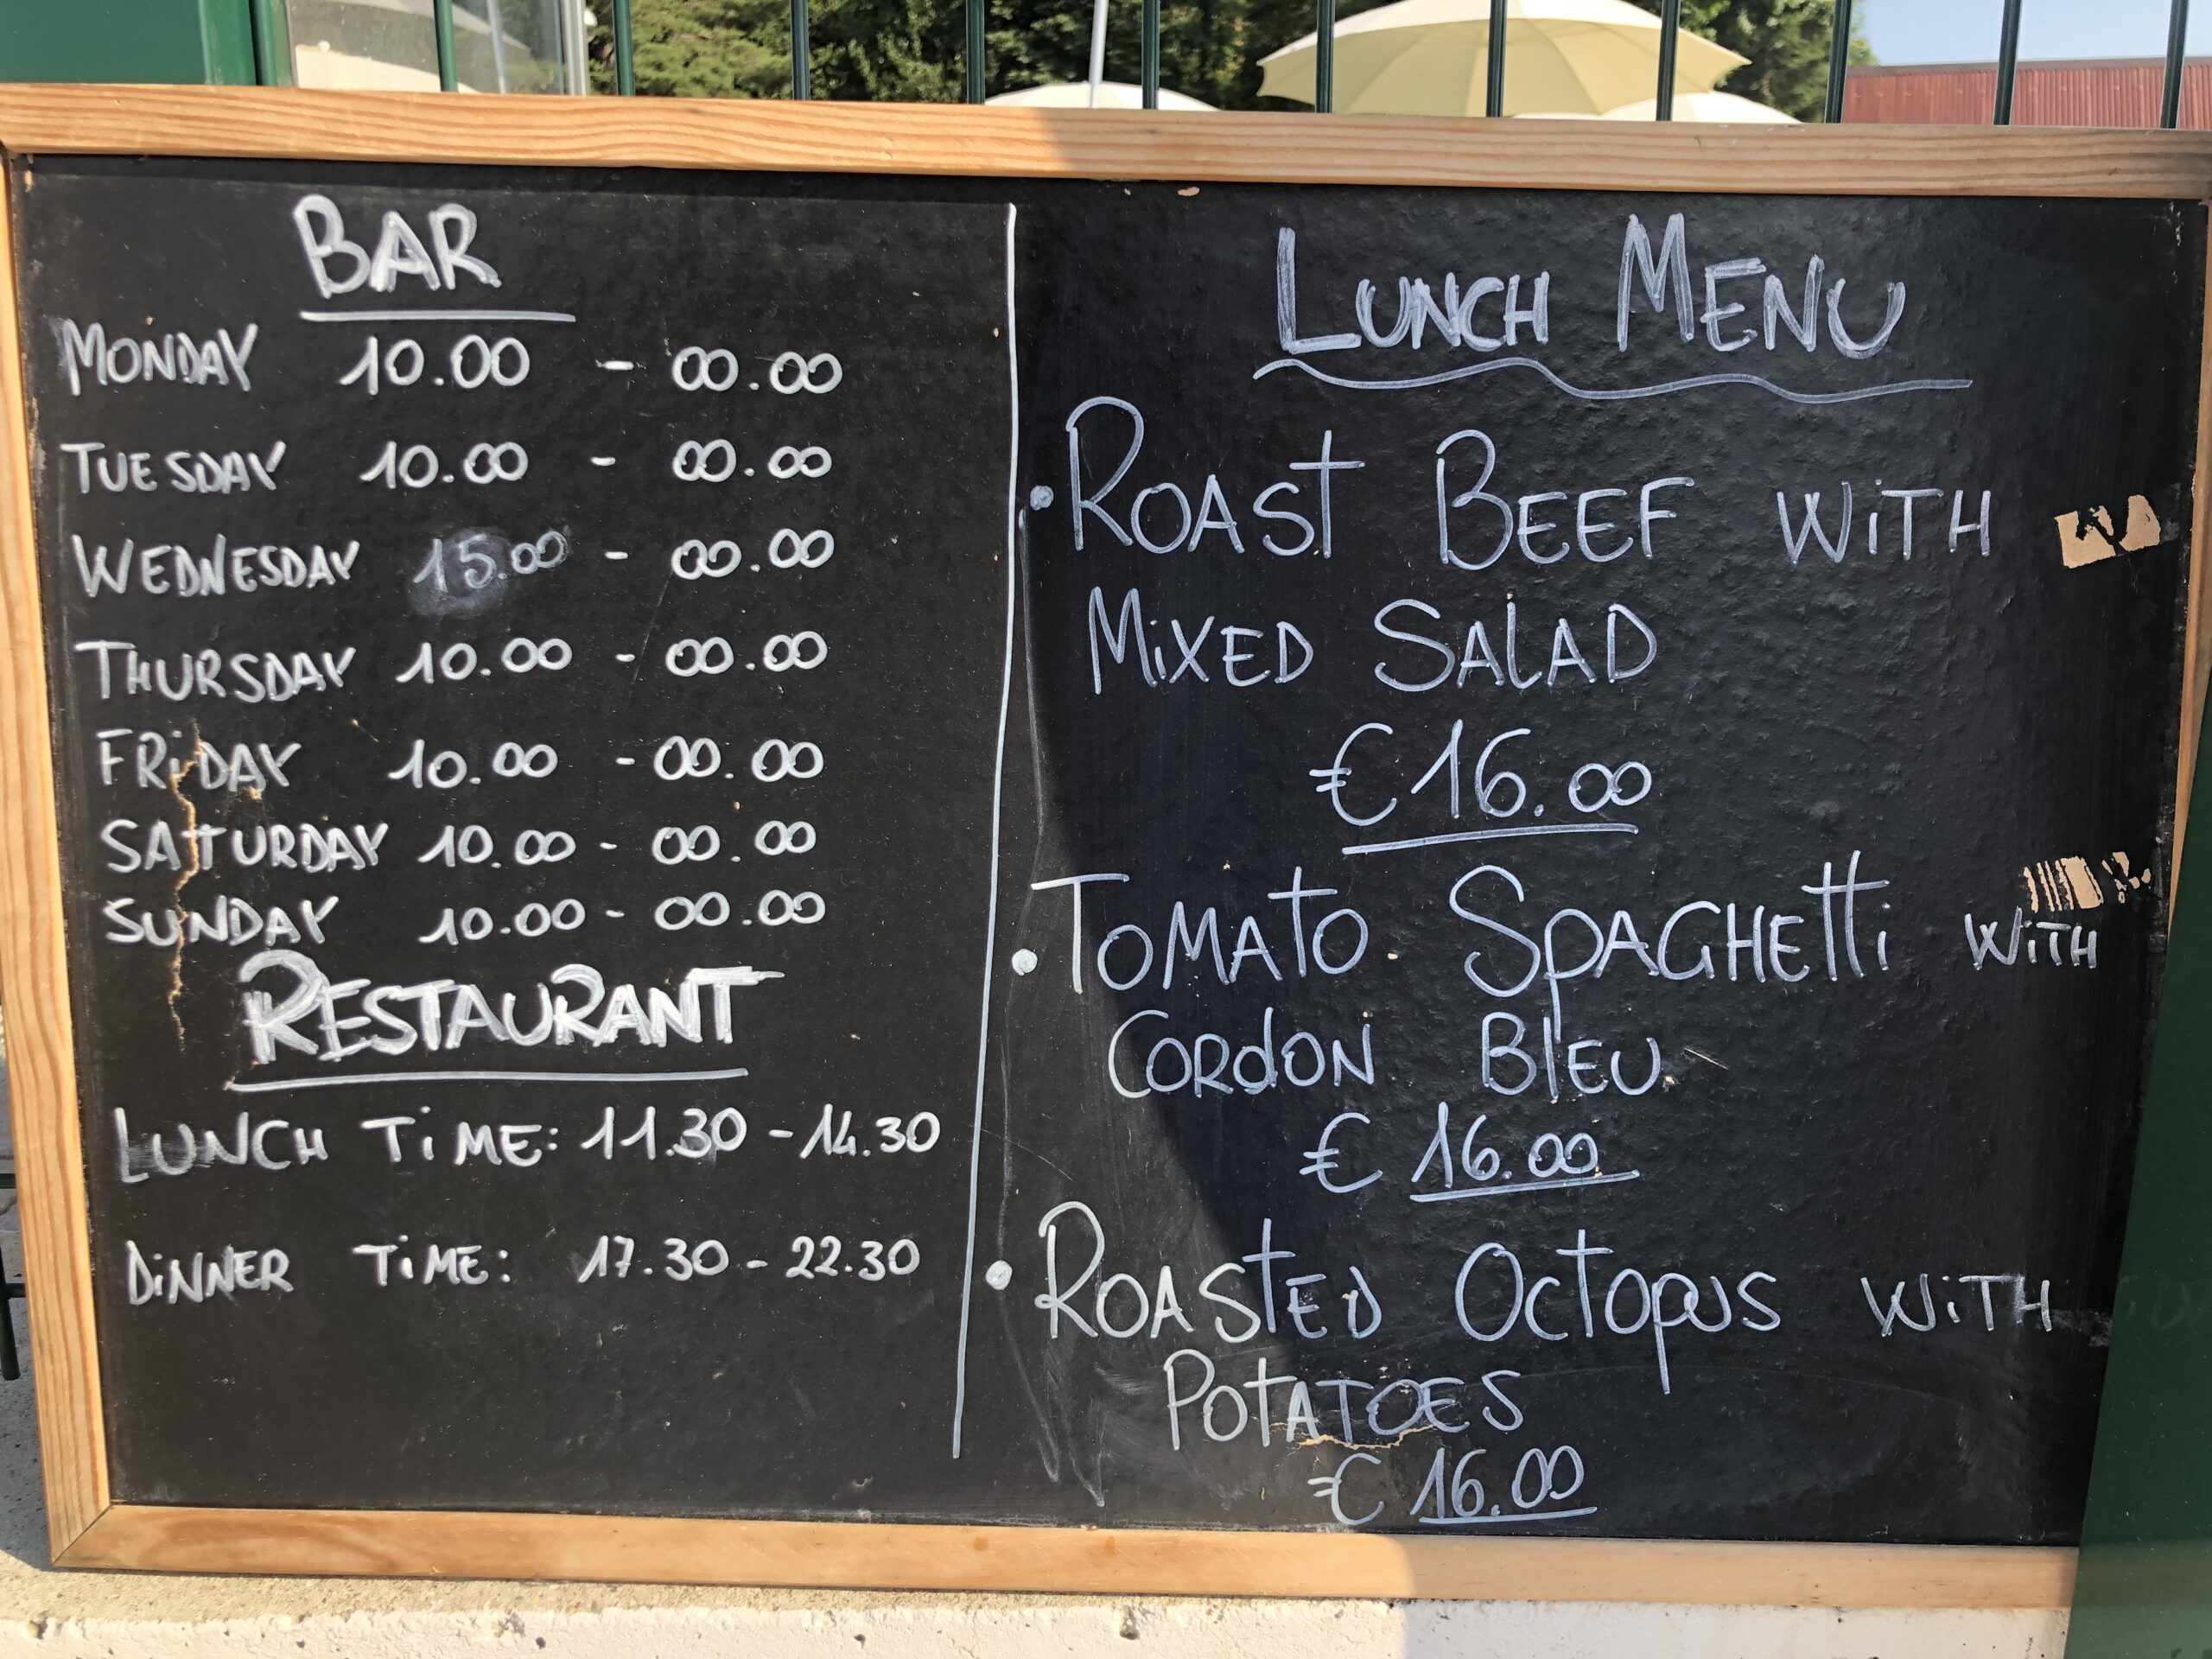 BAR
MONDAY 10.00 - 00.00
TUESDAY 10.00 - 00.00
WEDNESDAY 15.00 - 00.00
THURSDAY 10.00 - 00.00
FRiDAY 10.00 - 00.00
SATURDAY 10.00 - 00.00
SUNDAY 10.00 - 00.00
RESTAURANT
LUNCH TiME: 11.30 - 14.30
DiNNER TiME: 17.30 - 22.30
LUNCH MENU
• ROASt BEEF WiTH
MiXED SAlAD
€ 16.00
• TOMAtO SpAGHEtti WiTH
CORdON BlEU
€ 16.00
• ROAStED OctOpUS WiTH
POtATOES
€ 16.00